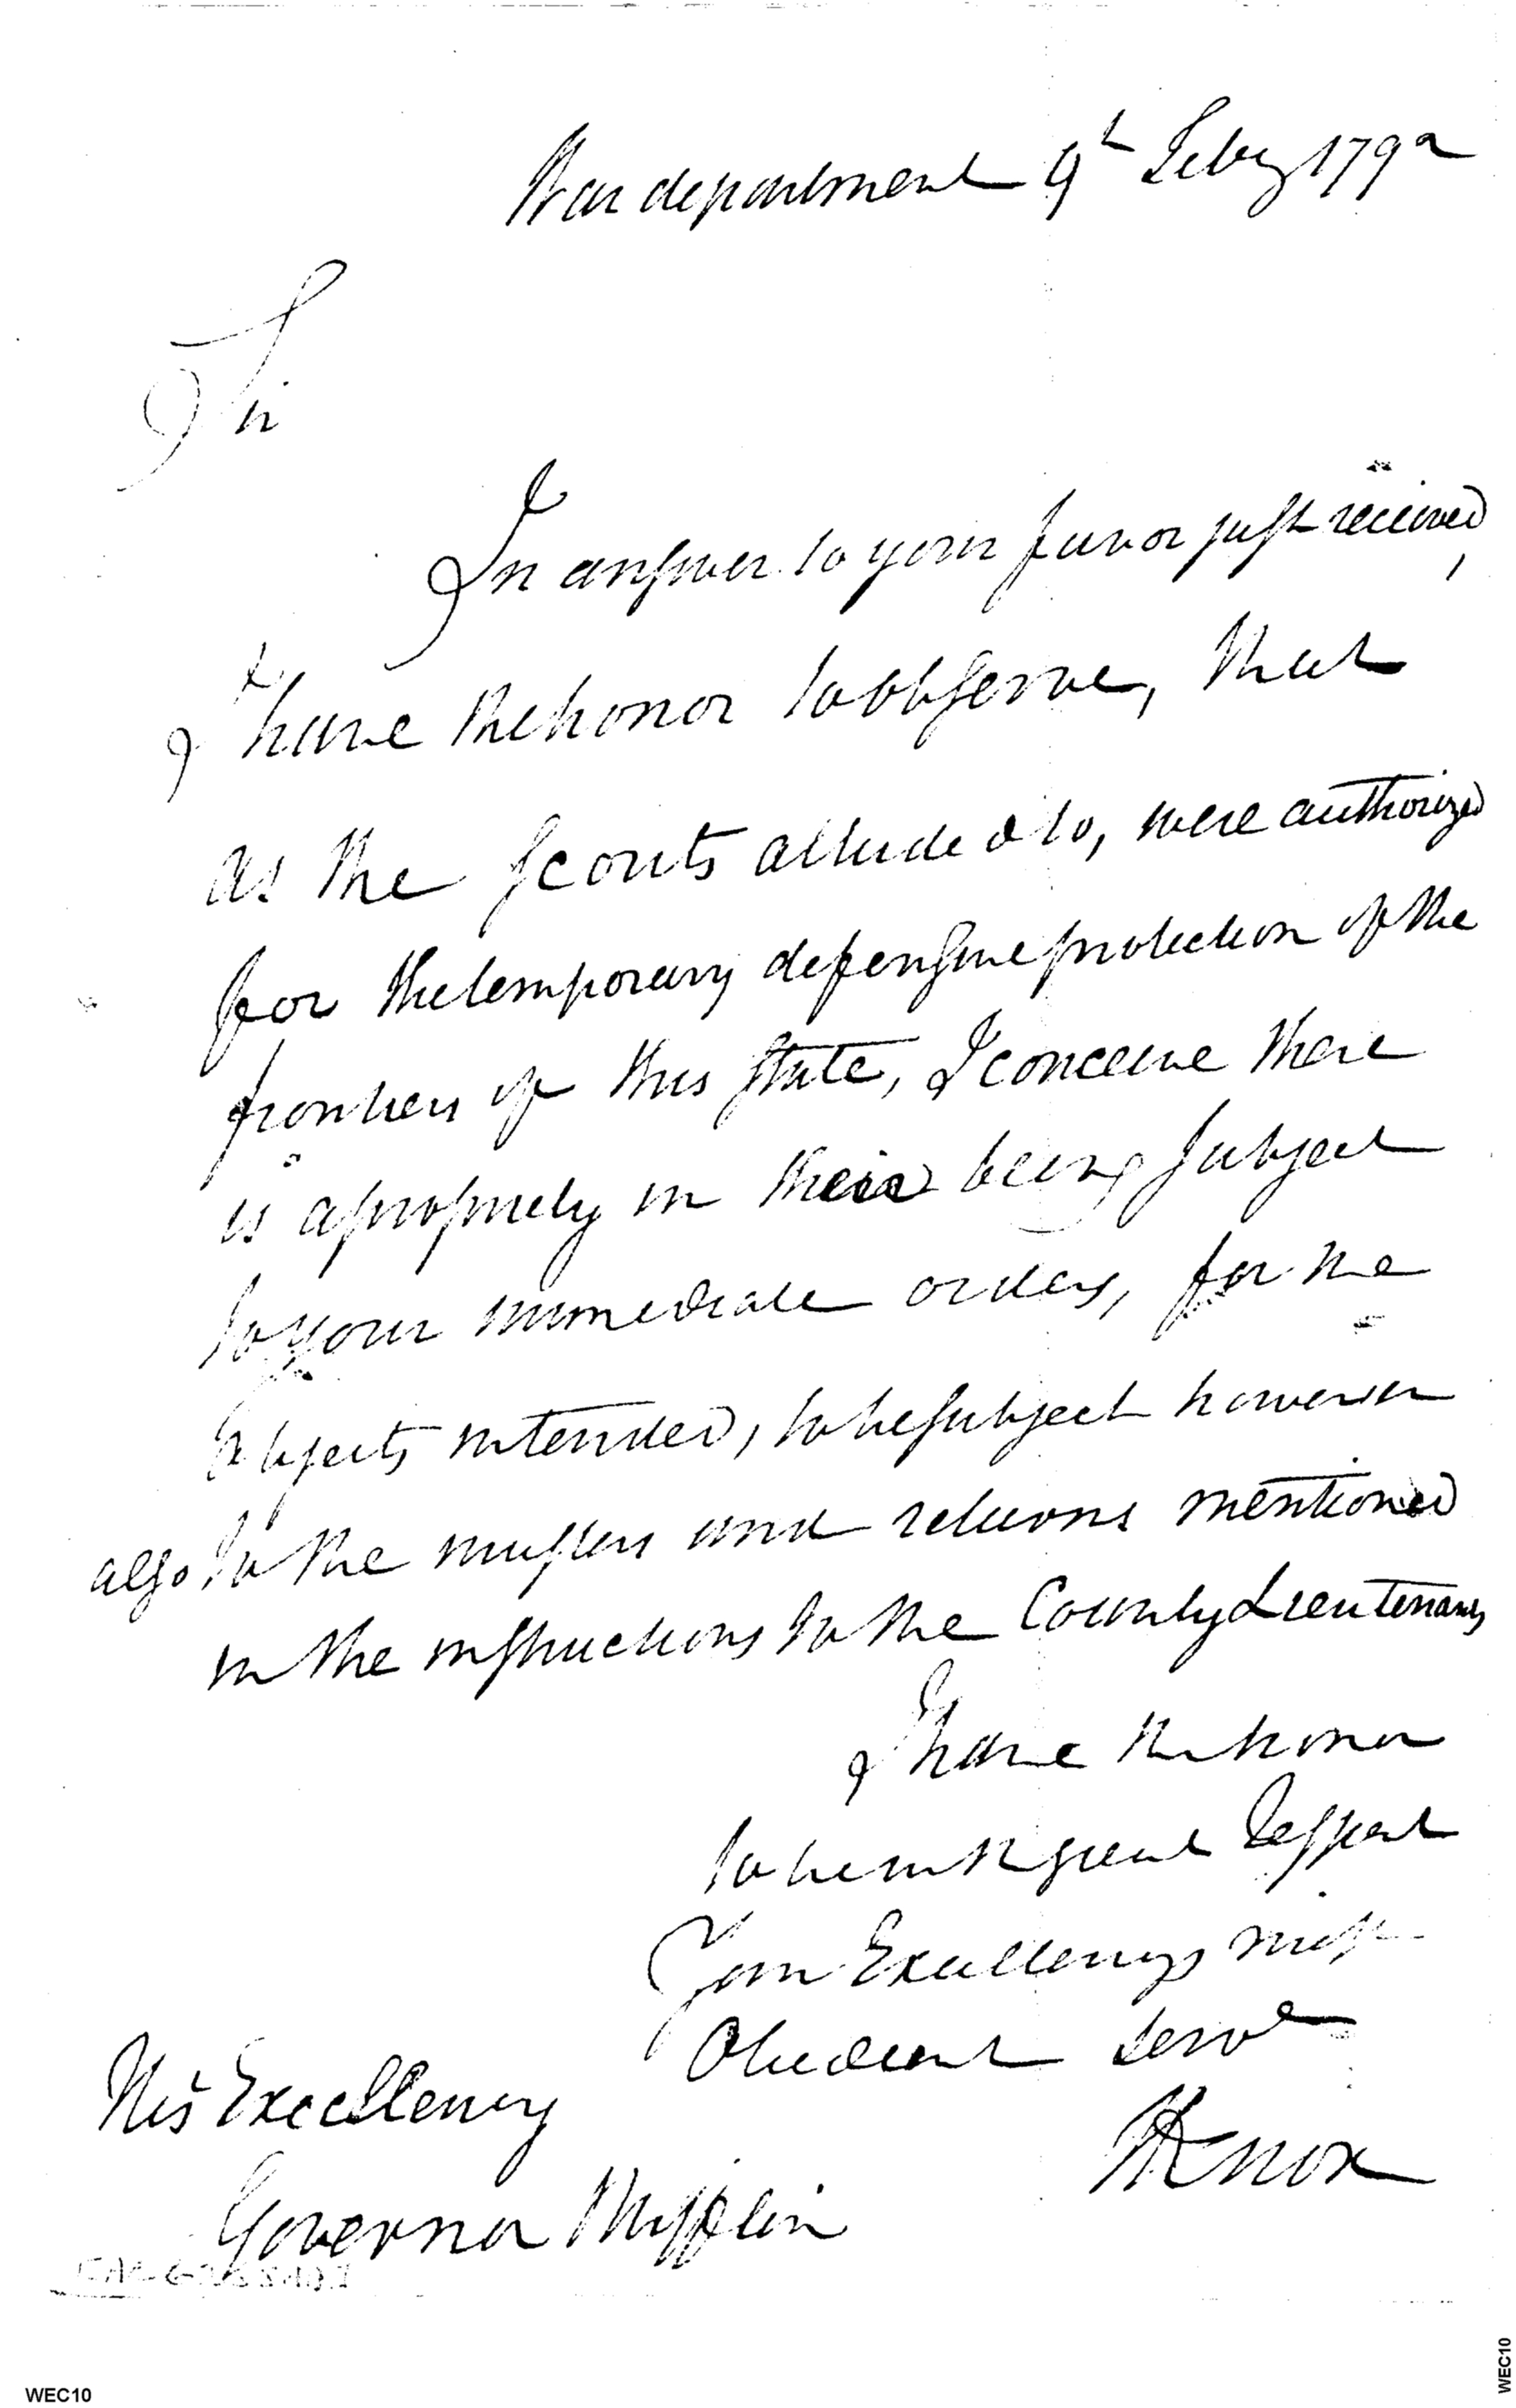 War department 9th Feby 1792
Sir
In answer to your favor just received,
I have the honor to observe, that
as the Scouts alluded to, were authorized
for the temporary defensive protection of the
frontiers of this State, I conceive there
is a propriety in their being Subject
to your immediate orders, for the
Objects intended, to be subject however
also, to the musters and returns mentioned
in the instructions to the County Lieutenants
I have the honor
to be with great Respect
Your Excellencys most
Obedient Servt
HKnox
His Excellency
Governor Mifflin
WEC10
WEC10